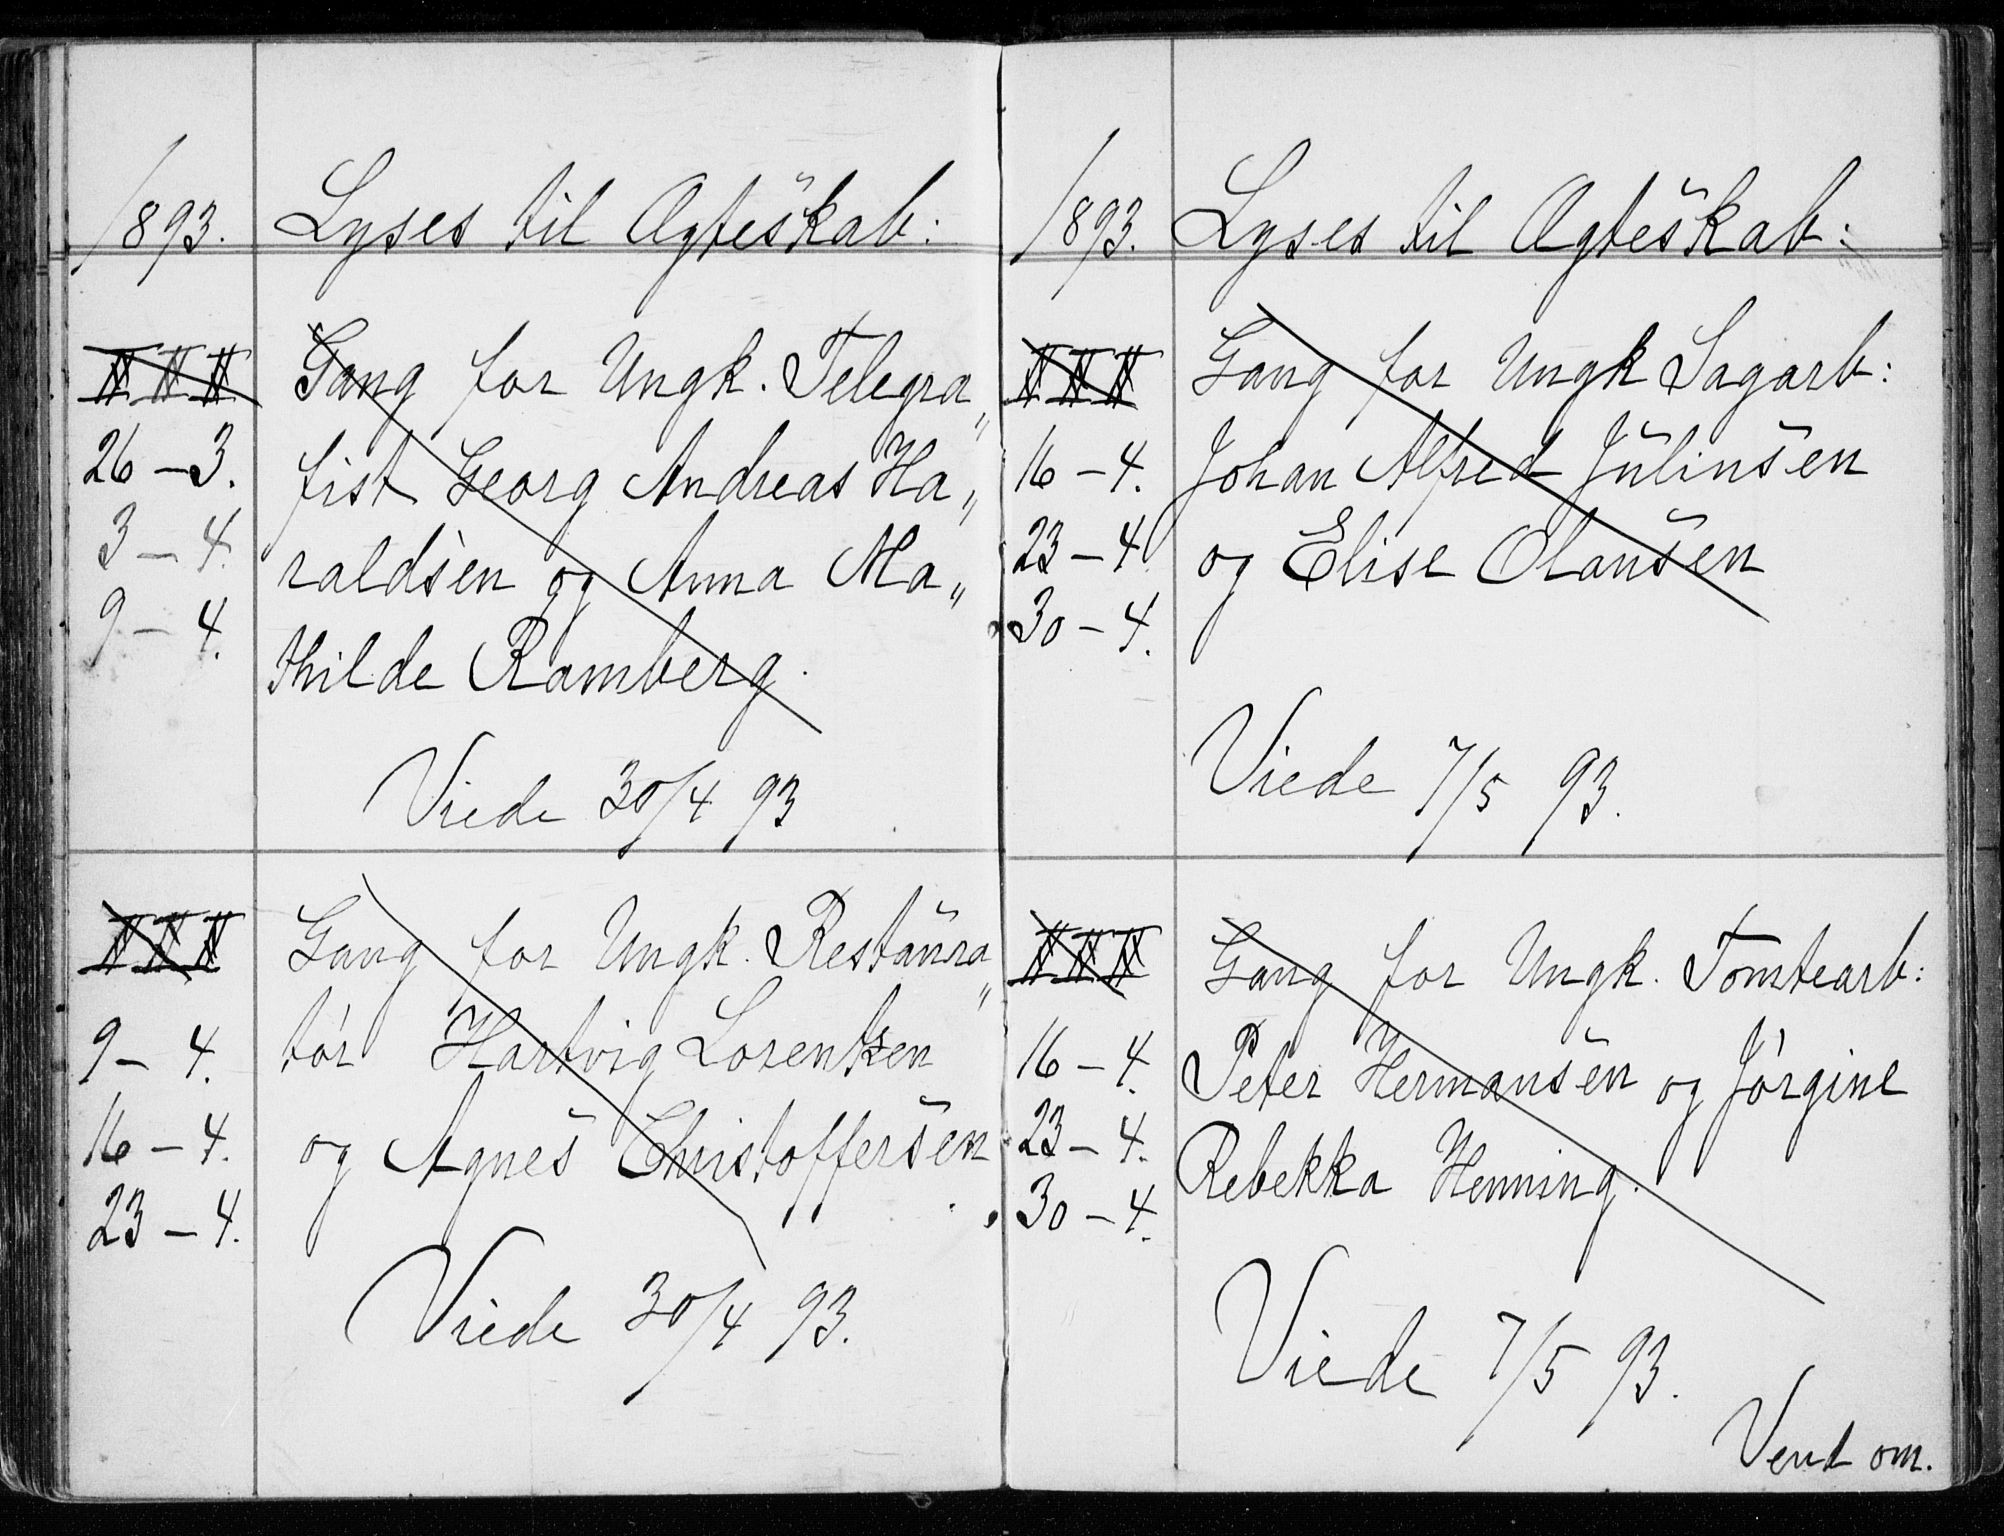 1893. Lyses til Ægteskab:
I II III Gang for Ungk. Telegra„
26 – 3. fist Georg Andreas Ha„
3 – 4. raldsen og Anna Ma„
9 – 4. thilde Ramberg.
Viede 30/4 93
I II III Gang for Ungk. Restaura„
9 – 4. tör Hartvig Lorentzen
16 – 4. og Agnes Christoffersen
23 – 4.
Viede 30/4 93.
1893. Lyses til Ægteskab:
I II III Gang for Ungk Sagarb:
16 – 4. Johan Alfred Julinsen
23 – 4 og Elise Olausen
30 – 4.
Viede 7/5 93.
I II III Gang for Ungk. Tomtearb:
16 – 4. Peter Hermansen og Jörgine
23 – 4. Rebekka Henning.
30 – 4.
Viede 7/5 93.
Vend om.